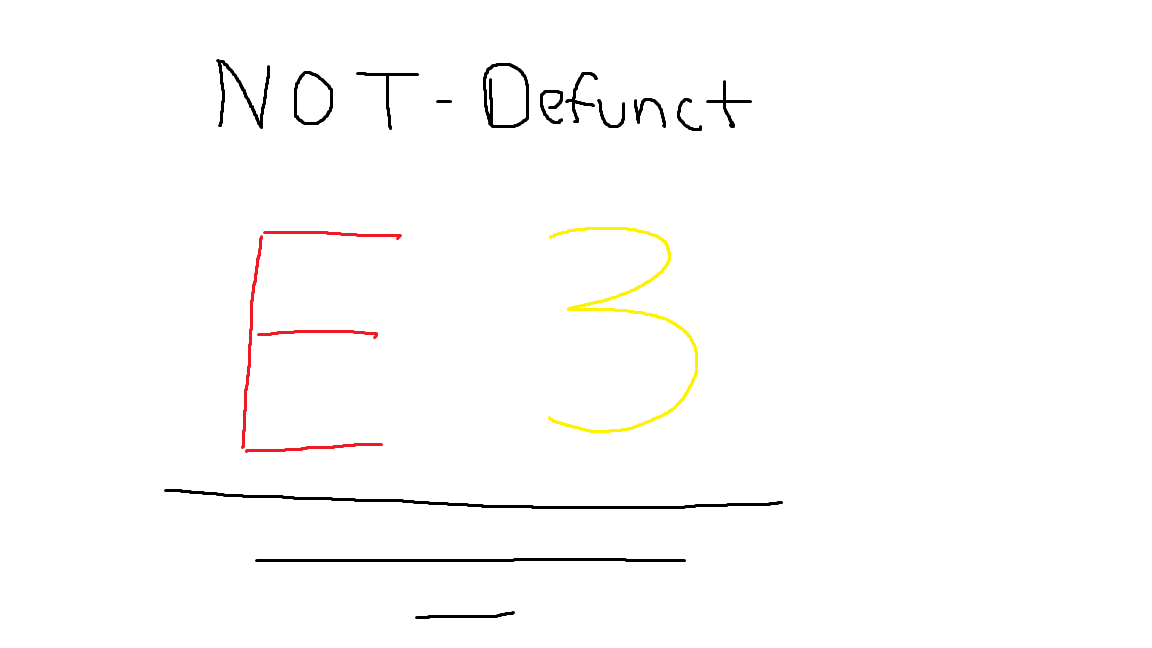 NOT-Defunct
E 3